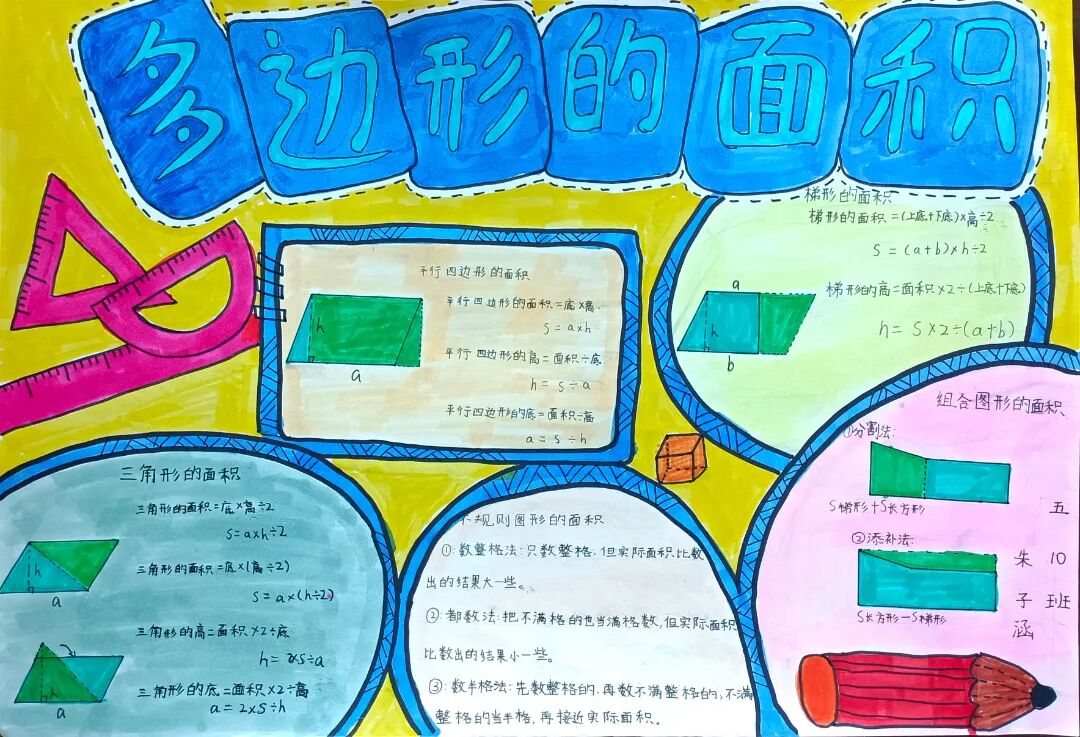 多边形的面积
平行四边形的面积
平行四边形的面积=底×高
S=a×h
平行四边形的高=面积÷底
h=S÷a
平行四边形的底=面积÷高
a=S÷h
h
a
梯形的面积
梯形的面积=(上底+下底)×高÷2
S=(a+b)×h÷2
梯形的高=面积×2÷(上底+下底)
h=S×2÷(a+b)
a
h
b
三角形的面积
三角形的面积=底×高÷2
S=a×h÷2
三角形的面积=底×(高÷2)
S=a×(h÷2)
三角形的高=面积×2÷底
h=2×S÷a
三角形的底=面积×2÷高
a=2×S÷h
h
a
h
a
不规则图形的面积
①:数整格法:只数整格,但实际面积比数
出的结果大一些。
②:都数法:把不满格的也当满格数,但实际面积
比数出的结果小一些。
③:数半格法:先数整格的,再数不满整格的,不满
整格的当半格,再接近实际面积。
组合图形的面积
①分割法:
S梯形+S长方形
②添补法:
S长方形-S梯形
五10班
朱子涵